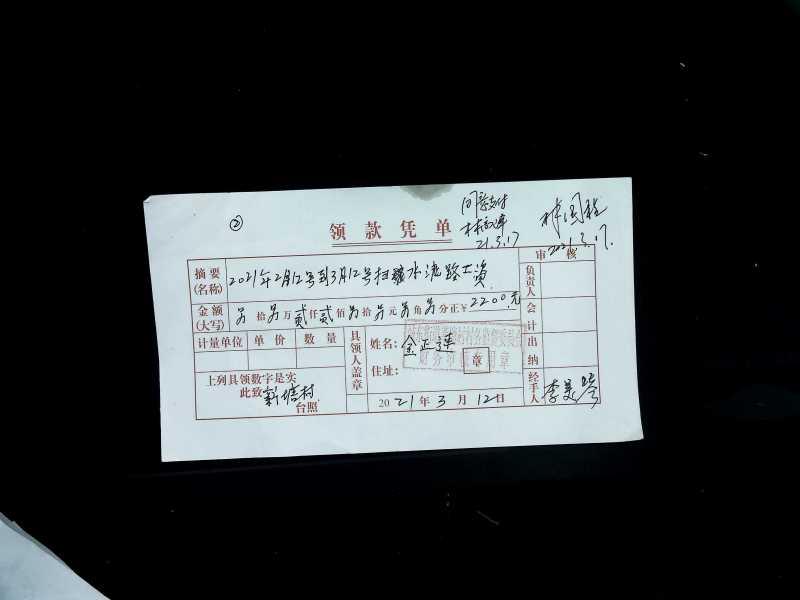 ②
同意支付
21.3.17
2021.3.17.
领款凭单
审核
摘要
(名称)
2021年2月12号到3月12号扫 水泥路工资
负责人
金额
(大写)
另拾另万贰仟贰佰另拾另元另角另分正￥2200.元
会计
计量单位 单价 数量
具领人盖章
姓名：金正
章
住址：
出纳
上列具领数字是实
此致 新塘村
台照
2021年3月12日
经手人
李美琴